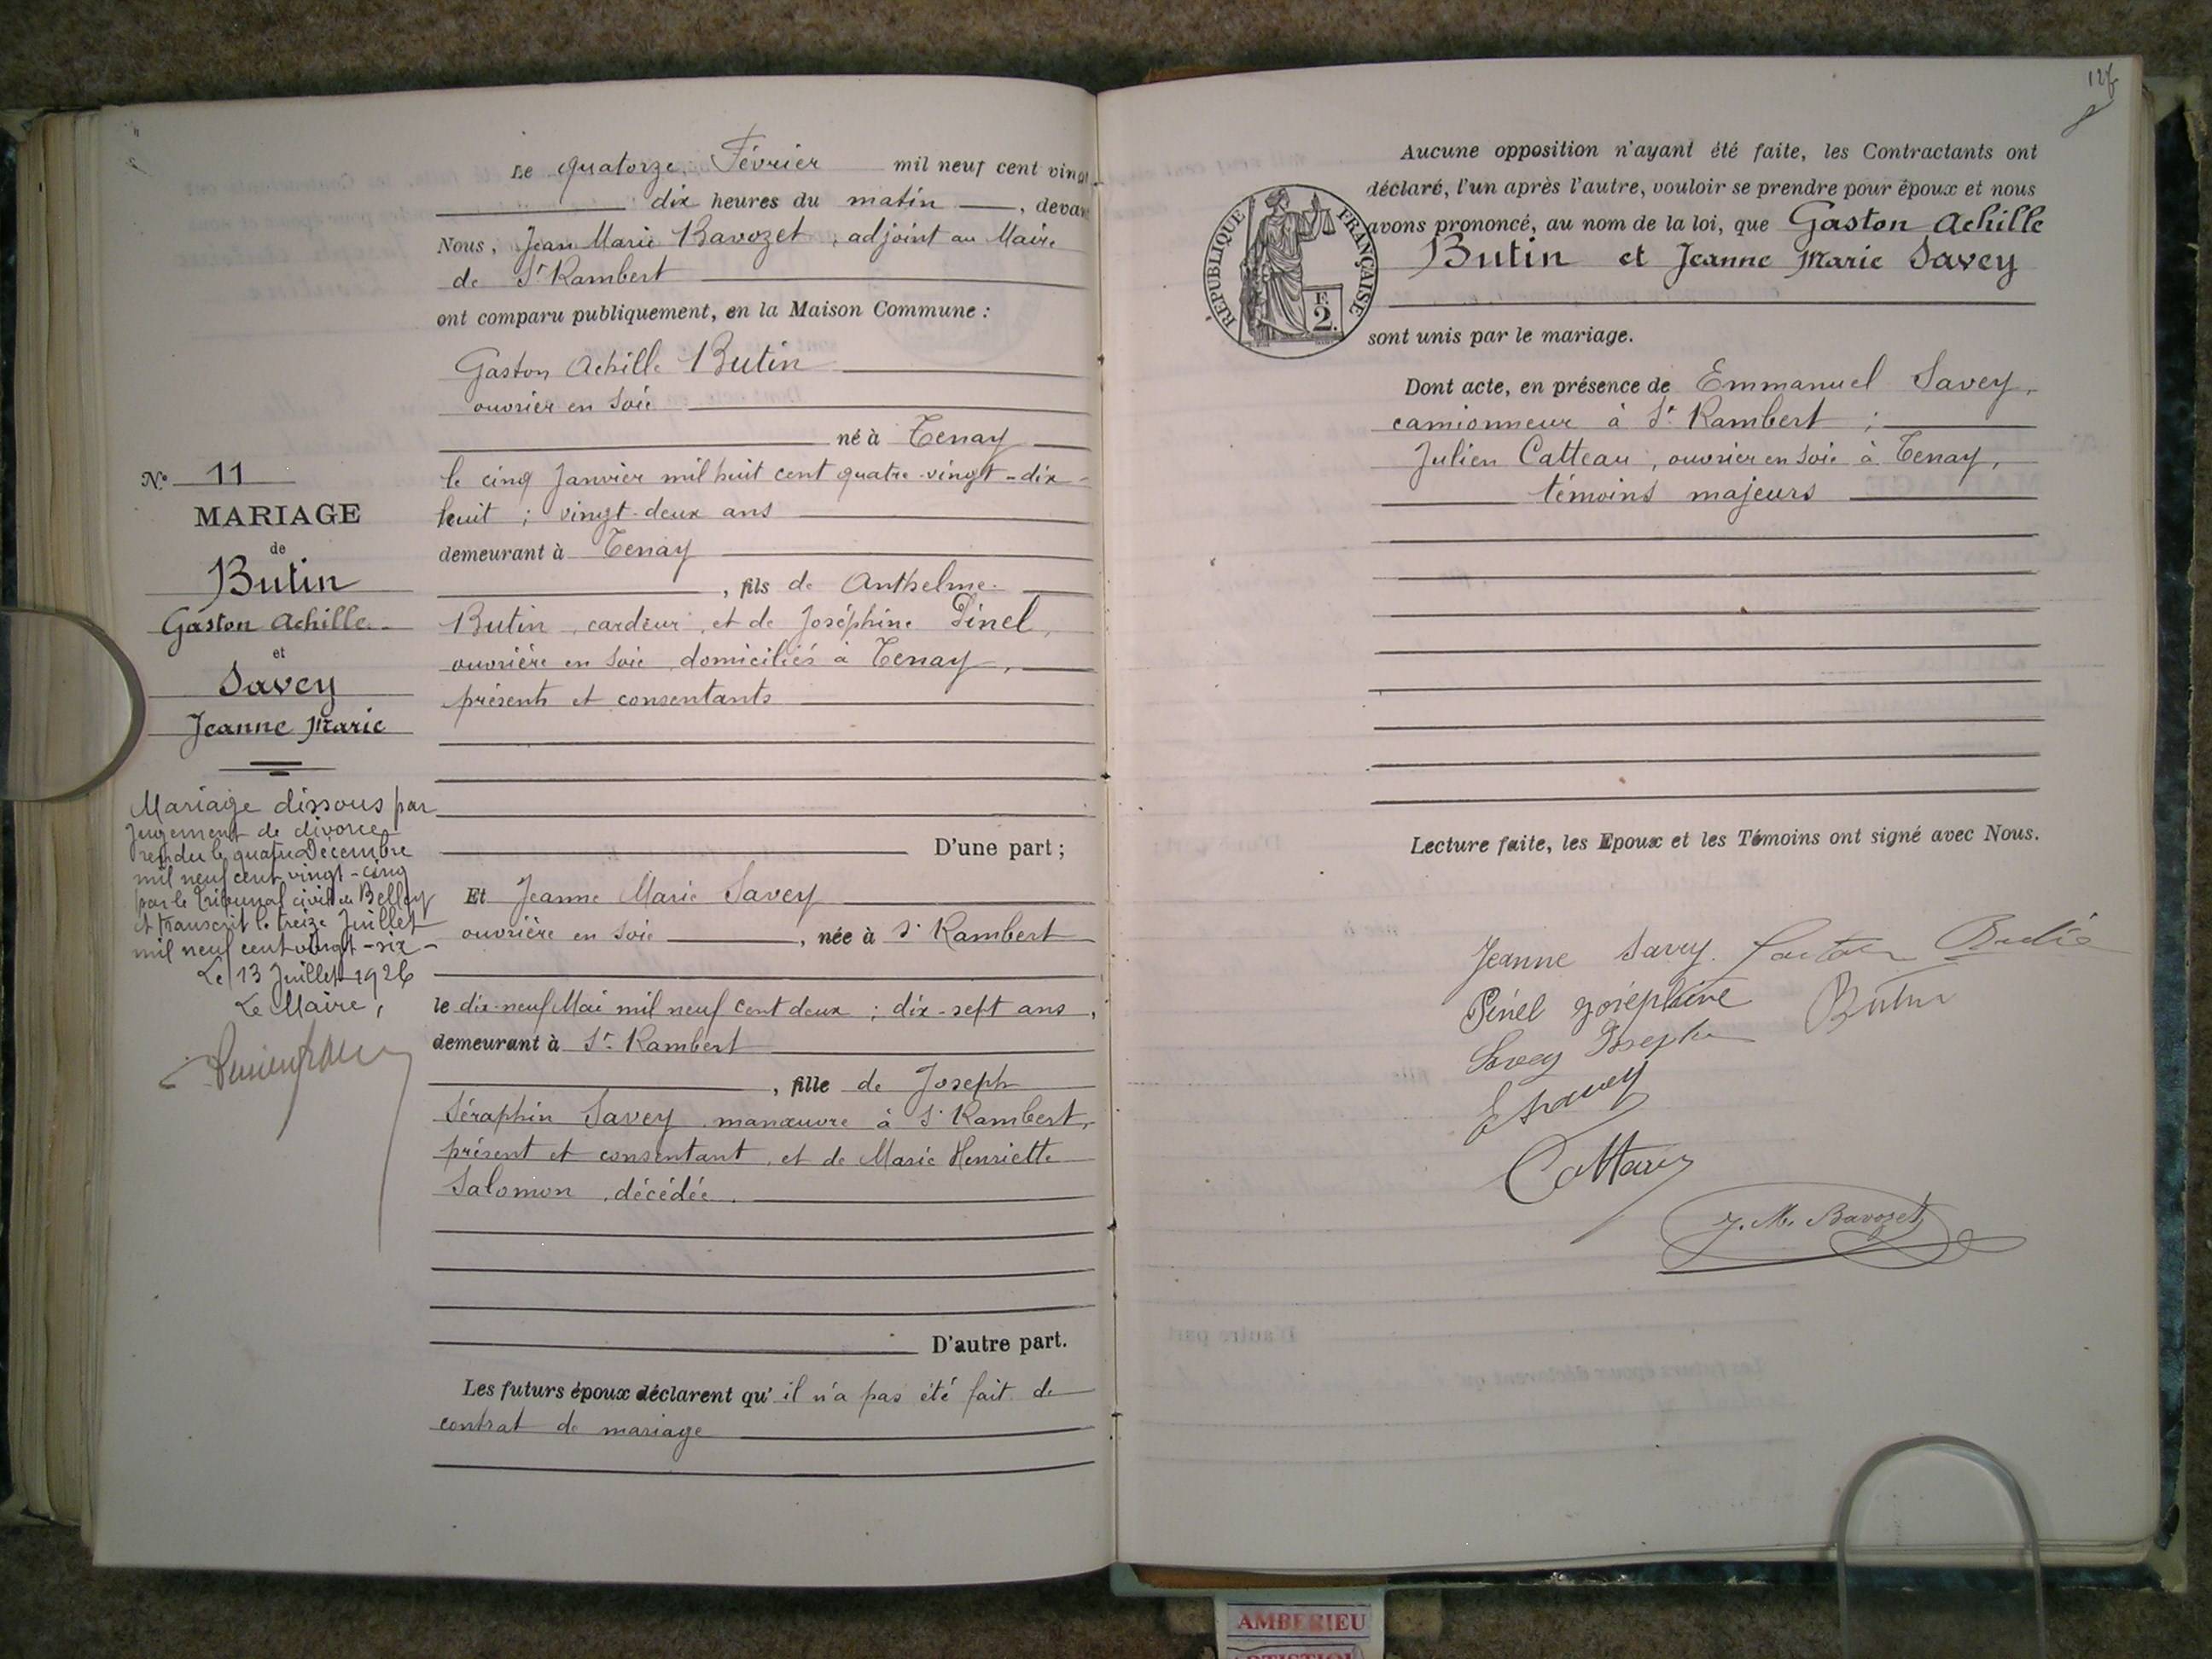 Le quatorze Février mil neuf cent vingt
dix heures du matin, devant
Nous, Jean Marie Bavozet, adjoint au Maire
de St Rambert
ont comparu publiquement, en la Maison Commune :
Gaston Achille Butin
ouvrier en soie
né à Tenay
le cinq Janvier mil huit cent quatre-vingt-dix-
huit ; vingt-deux ans
demeurant à Tenay
, fils de Anthelme
Butin, cardeur, et de Joséphine Pinel,
ouvrière en soie, domiciliés à Tenay,
présents et consentants
D'une part ;
Et Jeanne Marie Savey
ouvrière en soie, née à St Rambert
le dix-neuf Mai mil neuf cent deux ; dix-sept ans,
demeurant à St Rambert
, fille de Joseph
Séraphin Savey, manœuvre à St Rambert,
présent et consentant, et de Marie Henriette
Salomon, décédée.
D'autre part.
Les futurs époux déclarent qu'il n'a pas été fait de
contrat de mariage
No 11
MARIAGE
de
Butin
Gaston Achille
et
Savey
Jeanne Marie
Mariage dissous par
jugement de divorce
rendu le quatre Décembre
mil neuf cent vingt-cinq
par le Tribunal civil de Belley
et transcrit le treize Juillet
mil neuf cent vingt-six-
Le 13 Juillet 1926
Le Maire,
Aucune opposition n'ayant été faite, les Contractants ont
déclaré, l'un après l'autre, vouloir se prendre pour époux et nous
avons prononcé, au nom de la loi, que Gaston Achille
Butin et Jeanne Marie Savey
sont unis par le mariage.
RÉPUBLIQUE FRANÇAISE
F.
2.
Dont acte, en présence de Emmanuel Savey,
camionneur à St Rambert ;
Julien Catteau, ouvrier en soie à Tenay,
témoins majeurs
Lecture faite, les Epoux et les Témoins ont signé avec Nous.
Jeanne Savey. Butin
Pinel Joséphine Butin
Savey Joseph
E Savey
Catteau
J. M. Bavozet
AMBERIEU